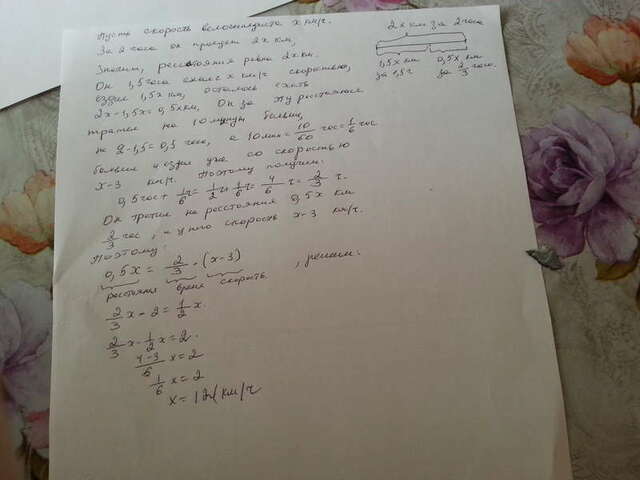 Пусть скорость велосипедиста x км/ч.
За 2 часа он проедет 2x км,
Значит, расстояния равна 2x км.
Он 1,5 часа ехал с x км/ч скоростью,
ездил 1,5x км, осталось ехать
2x-1,5x=0,5x км. Он за эту расстояние
тратил на 10 минут больше,
не 2-1,5=0,5 часа, а 10 мин = 10/60 час = 1/6 час
больше и ездил уже со скоростью
x-3 км/ч. Поэтому получим:
0,5 час + 1/6 ч = 1/2 ч + 1/6 ч = 4/6 ч = 2/3 ч.
Он тратил на расстояния 0,5x км
2/3 час, а у него скорость x-3 км/ч.
Поэтому:
0,5x = 2/3 · (x-3) , решим:
расстояния время скорость
2/3 x - 2 = 1/2 x.
2/3 x - 1/2 x = 2.
4-3/6 x = 2
1/6 x = 2
x = 12 (км/ч
2x км за 2 часа
1,5x км 0,5x км
за 1,5 ч за 2/3 часа.